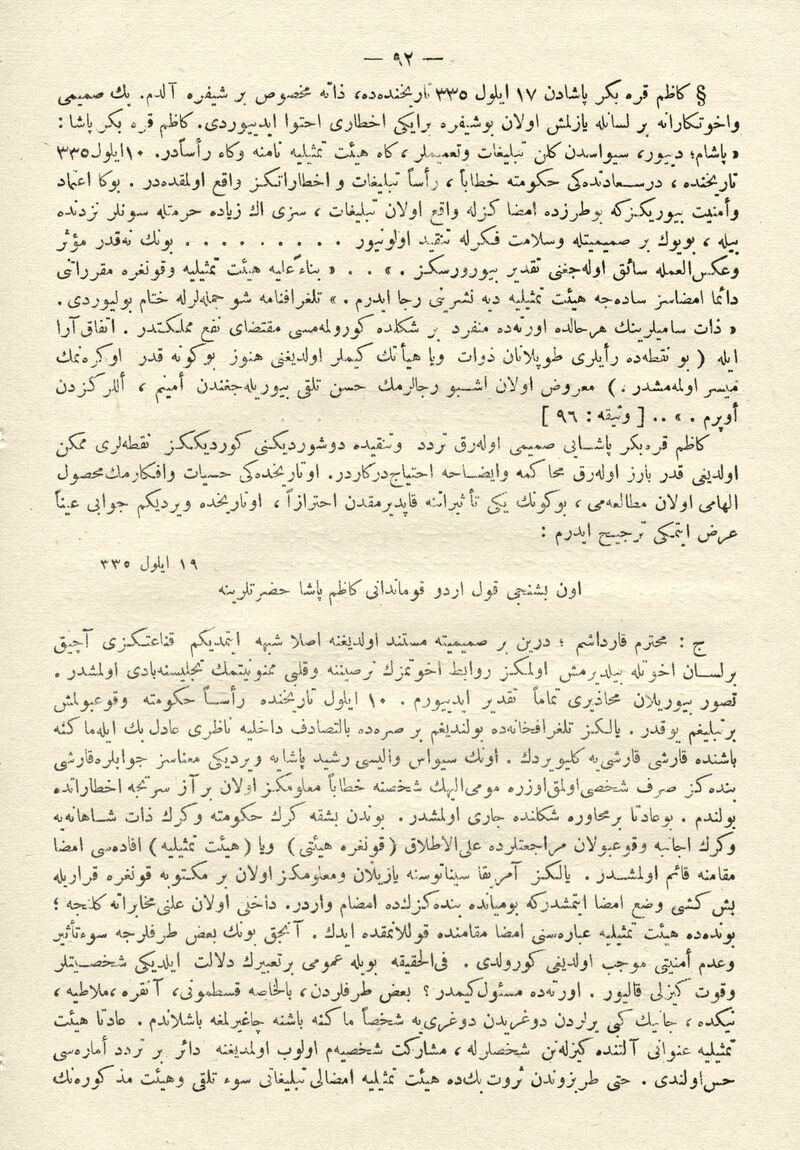 — ٩٢ —
§ كاظم قره بكر پاشادن ١٧ ایلول ٣٣٥ تاریخنده‌ده، ذاته مخصوص بر شیفره آلدم. پك صمیمی
واخوتكارانه بر لسانله یازلمش اولان بوشیفره برایكی اخطاری احتوا ایدییوردی. كاظم قره بكر پاشا :
« پاشام؛ دییور، سیواسدن كلن تبلیغات وتعمیملر ، كاه هیئت تمثیلیه نامنه وكاه رأساًدر. ١٠ ایلول ٣٣٥
تاریخنده ، درسـعادتده‌كی حكومته خطاباً ، رأساً تبلیغات و اخطاراتكز واقع اولمقده‌در . بوكا اعتماد
وأمنیت بیوریكزكه بوطرزده امضا كزله واقع اولان تبلیغات ، سزی اك زیاده حرمتله سونلر نزدنده
بیله ، بویوك بر صمیمیتله وسلامت فكرله تنقید اولونیور . . . . . . . . . بونك نه‌قدر مؤثر
وعكس‌العمله سائق اوله‌جغنی تقدیر بیوررسكز . » . . . « بناءً علیه هیئت تمثیلیه وقونغره مقرراتنی
دائما امضاسز ساده‌جه هیئت تمثیلیه دیه نشرینی رجا ایدرم . » تلغرافنامه شو جمله‌لرله ختام بولیوردی .
« ذات سامیلرینك هرحالده اورته‌ده منفرد بر شكلده كورولمه‌مسی مقتضای نفع مملكتدر . اتفاق آرا
ایله ( بو نقطه‌ده رأیلری طوپلانان ذوات ویا هیأتك كیملر اولدیغنی هنوز بوكونه قدر اوكره‌نمك
میسر اولمه‌مشدر . ) معروض اولان اشـبو رجالرمك حسن تلقی بیوریله‌جغندن أمینم ، أللركزدن
أوپرم . » .. [ وثیقه : ٩٦ ]
كاظم قره‌بكر پاشـایی صمیمی اوله‌رق تردد وتنقیده دوشوردیكنی كوردیككز نقطه‌لری ممكن
اولدیغی قدر بارز اوله‌رق محاكمه وایضـاحه احتیاج‌دركاردر. اوتاریخده‌كی حسیات وافكارمك‌محصول
الهامی اولان مطالعه‌می ، بوكونك یكی تأثیراتنه قاپدیرمقدن احترازاً ، اوتاریخده ویردیكم جوابی عیناً
عرض ایتمكی ترجیح ایدرم :
١٩ ایلول ٣٣٥
اون بشنجی قول اردو قوماندانی كاظم پاشا حضرتلرینه
ج : محترم قارداشم ؛ درین بر صمیمیته مستند اولدیغنه اصلا شبهه ایتمدیكم قناعتكزی آچیق
برلسـان اخوتله بیلدیرمش اولمكز روابط اخوتمزك ترصیننه وقلبی ممنونیتمك تجلیسنه‌بادی اولمشدر .
تصور بیوریلان محاذیری تماماً تقدیر ایدییورم . ١٠ ایلول تاریخنده رأسـاً حكومته وقوعبولمش
برتبلیغم یوقدر . یالكز تلغرافخانه‌ده بولندیغم بر صره‌ده بالتصادف داخلیه ناظری عادل بك ایله‌ماكنه
باشنده قارشی قارشی‌یه كلیویردك . اونك سیواس والیسی رشید پاشایه ویردیكی معناسز جوابلره‌قارشی
بنده‌كز صرف شخصی‌اولمق‌اوزره مومی‌الیهك شخصنه خطاباً معلومكز اولان برآز سرتجه اخطاراتده
بولندم . بوعادتا برمحاوره شكلنده جاری اولمشدر. بوندن بشقه كرك حكومته وكرك ذات شـاهانه‌یه
وكرك اجانبه وقوعبولان مراجعتلرده علی‌الاطلاق (قونغره هیئتی) ویا (هیئت تمثیلیه) افاده‌سی امضا
مقامنه قائم اولمشـدر . یالكز آمریقا سیناتوسنه یازیلان ومعلومكز اولان بر مكتوبه قونغره قراریله
بش كشی وضع امضا ایتمشدركه بومیانده بنده‌كزك‌ده امضام واردر. داخلی اولان علنی مخابراته كلنجه ؛
بونده‌ده هیئت تمثیلیه عباره‌سنی امضا مقامنده قوللانمقده ایدك . آنجق بونك بعض طرفلرجه سوءتأثیر
وعدم أمنیتی موجب اولدیغی كورولدی . فی‌الحقیقه بویله عمومی برتعبیرك دلالت ایلدیكی شخصـیتلر
وقوت كیزلی قالیور . اورته‌ده مسئول‌كیمدر ؟ بعض طرفلردن، بالخاصه قسطمونی، آنقره ،ملاطیه،
نیكده ، جانیك كبی یرلردن دوغریدن دوغری‌یه شخصاً ماكنه باشنه چاغیرلمغه باشلاندم . عادتا هیئت
تمثیلیه عنوانی آلتنده كیزله‌نن شخصلرله ، مشاركت شخصیه‌م اولوب اولمدیغنه دائر بر تردد أماره‌سی
حس‌اولندی . حتی طربزوندن ثروت بك‌ده هیئت تمثیلیه امضالی تبلیغاتی سوء تلقی وهیئت مذكوره‌نك